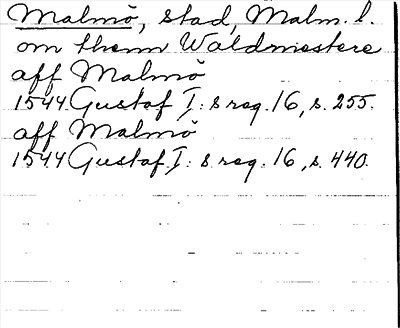 Malmö, stad, Malm. l.
om thenn Waldmestere
aff Malmö
1544 Gustaf I: s reg. 16, s. 255.
aff Malmö
1544 Gustaf I: s reg. 16, s. 440.